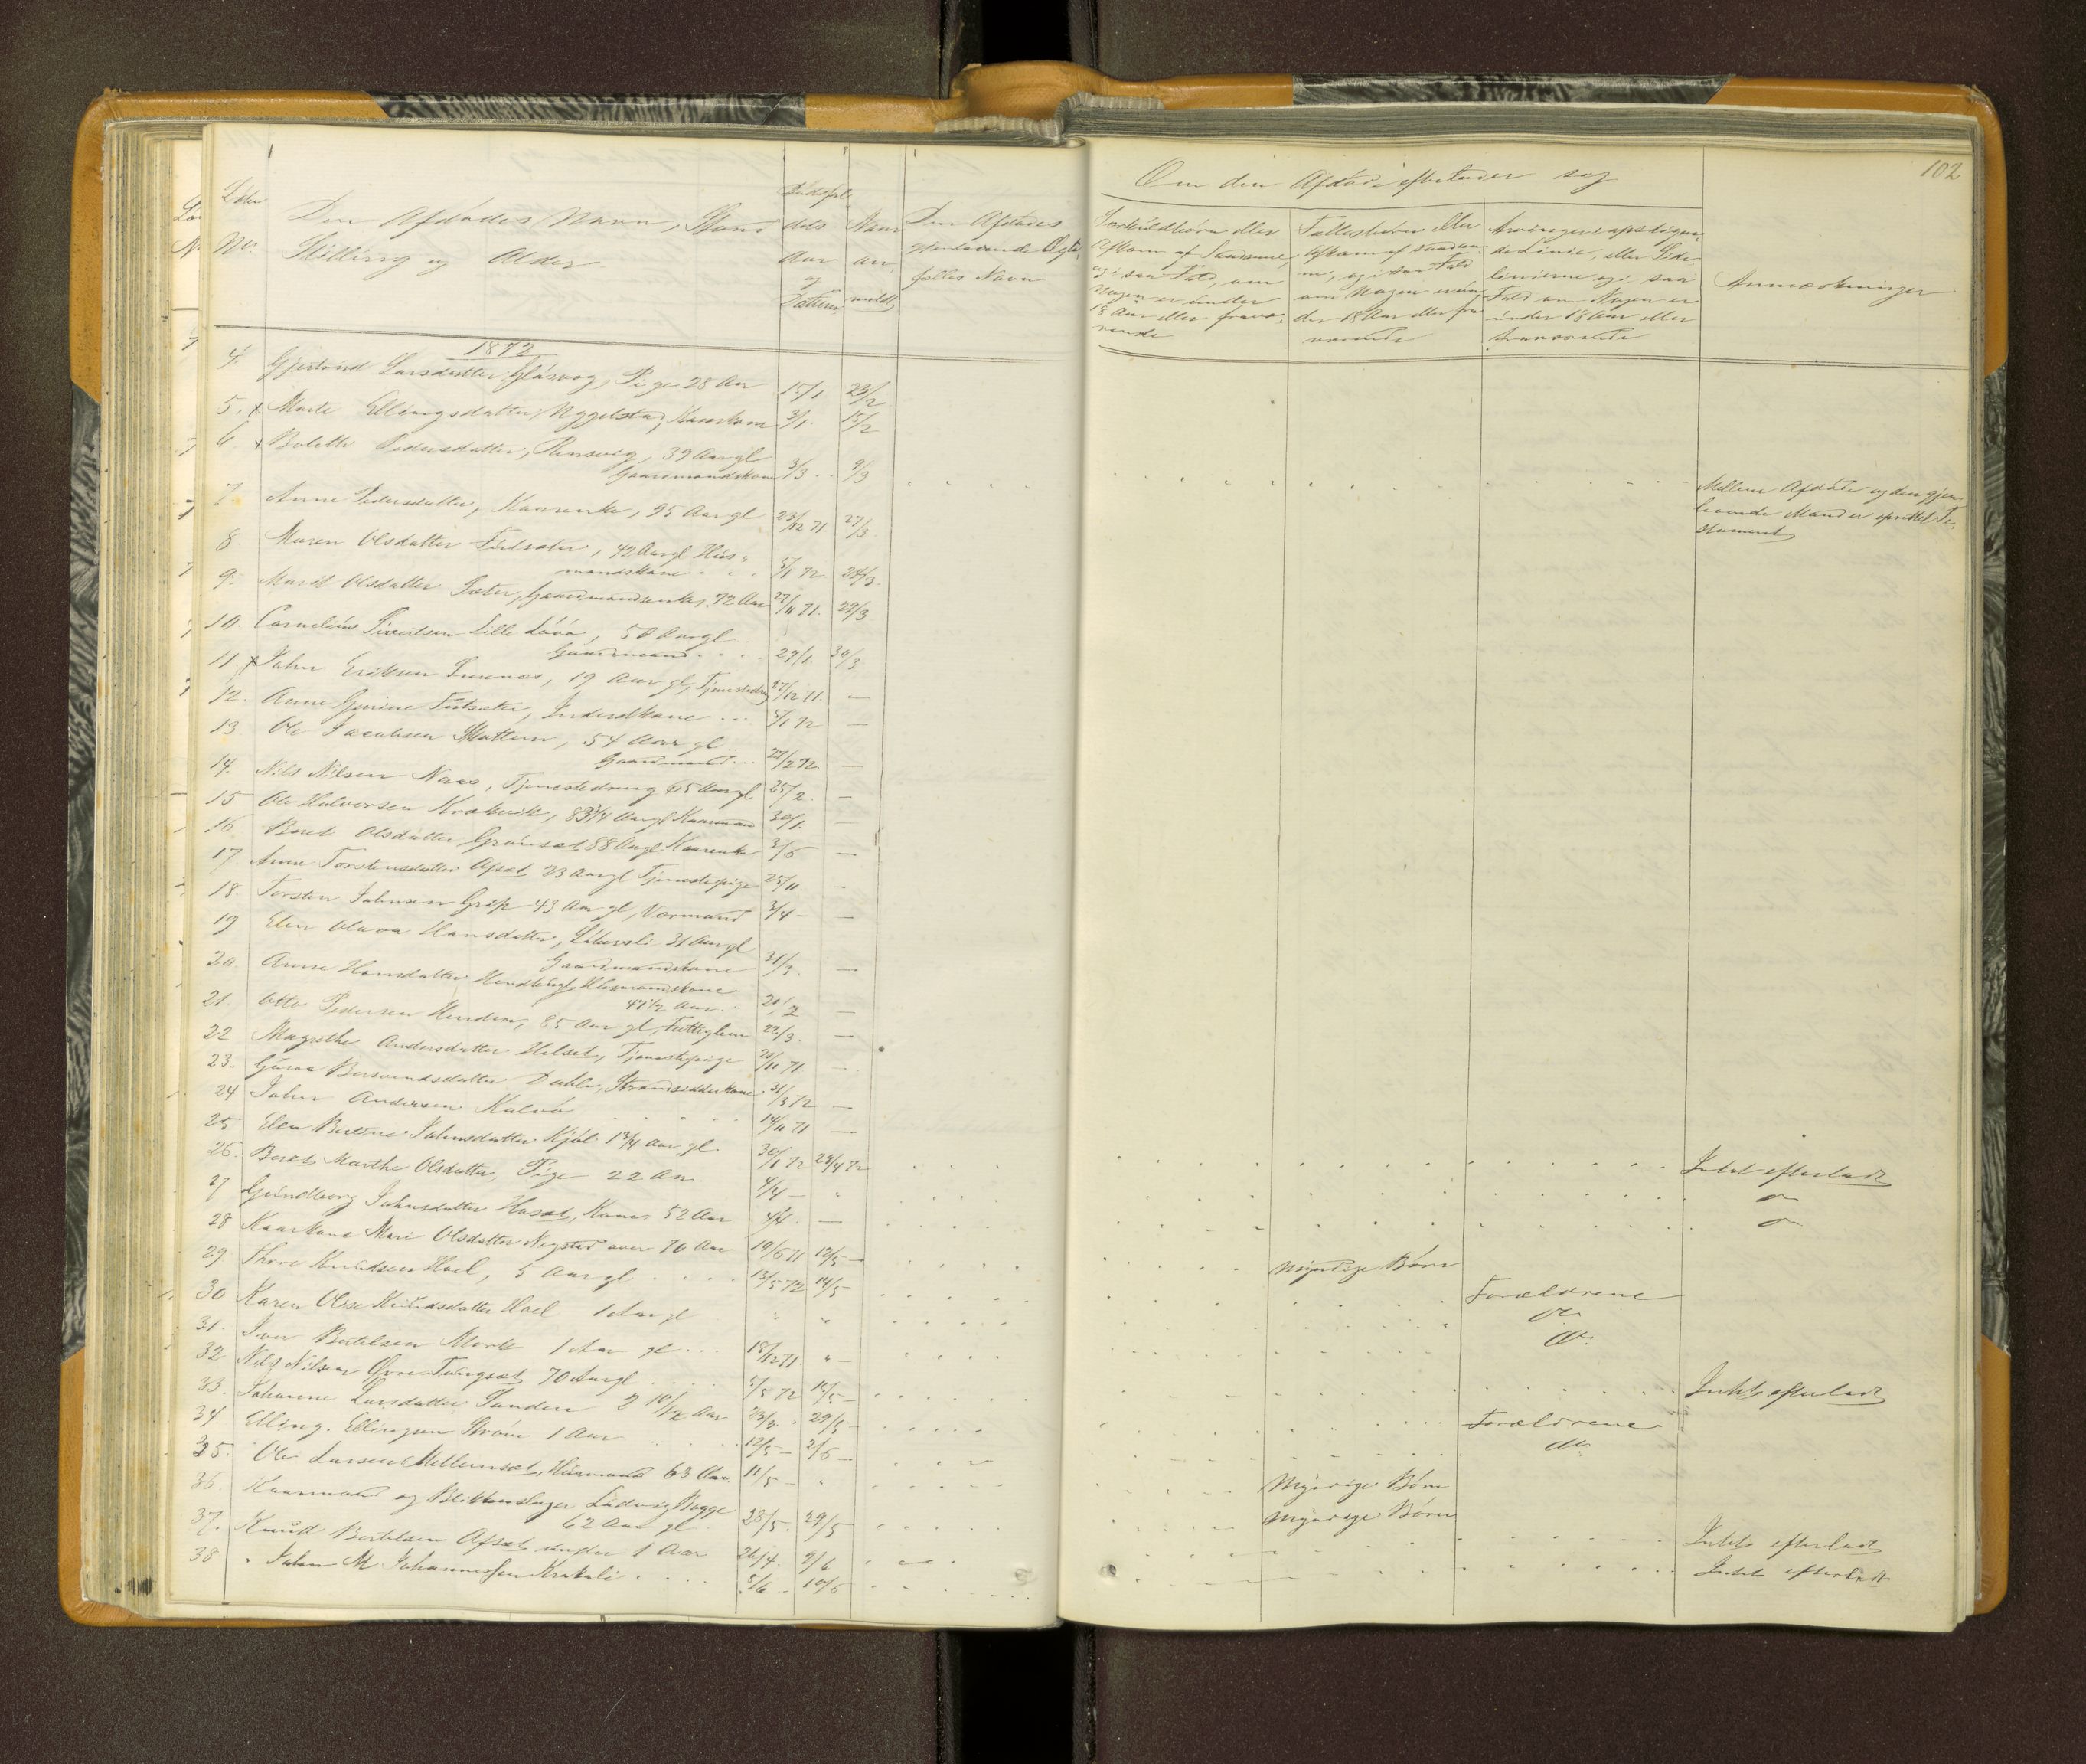 102
Om den Afdøde efterlader sig
Løbe
No.
Den Afdødes Navn, Stand
Stilling og Alder
Dødsfal-
dets
Aar
og
Datum
Naar
an-
meldt
Den Afdødes
gjenlevende Ægte-
fælles Navn
Særkuldbørn eller
Afkom af Saadanne,
og i saa Fald, om
Nogen er under
18 Aar eller fravæ-
rende
Fællesbørn eller
Afkom af saadan-
ne, og i saa Fald
om Nogen er un-
der 18 Aar eller fra-
værende
Arvinger i opstigen-
de Linie, eller Side-
linierne og i saa
Fald om Nogen er
under 18 Aar eller
fraværende
Anmærkninger
1872
4. Gjertrud Larsdatter Glasvog, Pige 28 Aar 15/1 23/2
5. x Marte Ellingsdatter Nyggelstad, Kaarkone 3/1. 15/2
6. x Bolette Pedersdatter, Rensvig, 39 Aar gl
Gaardmandskone 3/3 9/3
Mellem Afdøde og den gjen-
levende Mand er oprettet Te-
stament
7. Anne Pedersdatter, Kaarenke, 95 Aar gl 23/12 71 27/3
8 Maren Olsdatter , 42 Aar gl Huus-
mandskone 5/1 72 28/3.
9. Marit Olsdatter Sæter, Gaardmandsenke, 72 Aar 27/11 71. 29/3
10. Cornelius Sivertsen Lille , 50 Aar gl
Gaardmand 29/1 30/3
11. x John Eriksen , 19 Aar gl, Tjenestedreng 27/12 71. —
12. Anne , Inderstkone ... 5/1 72 —
13 Ole Jacobsen , 54 Aar gl
Gaardmand... 27/2 72 —
14. Nils Nilsen Naas, Tjenestedreng 65 Aar gl 25/2. —
15 Ole Halvorsen Krakvik, 83 3/4 Aar gl Kaarmand 30/1. —
16 Beret Olsdatter Grønset 88 Aar gl Kaarenke 3/5 —
17. Anne Torstensdatter Afset 23 Aar gl Tjenestepige 25/11 —
18. Torsten Johnsen 43 Aar gl, 3/4 —
19 Elen Olava Hansdatter, 31 Aar gl
Gaardmandskone 31/3. —
20. Anne Hansdatter Huusmandskone
47 1/2 Aar 20/2 —
21. Otto Pedersen , 85 Aar gl, Fattiglem 22/3. —
22 Magrethe Andersdatter Helset, Tjenestepige 21/11 71. —
23. Guroe Dahle, Strandsidderkone 31/3 72 —
24 John Andersen Kalvø 14/11 71 —
25 Elen Johnsdatter Kjøl 1 3/4 Aar gl 30/1 72 29/4 72 Intet efterladt
26. Beret Marthe Olsdatter, Pige 22 Aar 4/4 — " do
27 Gundborg Johnsdatter Haset, Kone 52 Aar 4/4. — do
28 Kaarkone Mari Olsdatter Nygsted over 70 Aar 19/6 71 12/5 — Myndige Børn
29 Thore Knudsen Hoel, 5 Aar gl 13/5 72 14/5 Forældrene
30 Karen Knudsdatter Hoel 1 Aar gl " " do
31. Iver Bertelsen Mork 1 Aar gl 18/12 71. " — do.
32 Nils Nilsen Øvre 70 Aar gl 5/5 72 15/5 — Intet efterladt
33. Johanne Larsdatter Sanden 2 10/12 Aar 23/3. 29/5 Forældrene
34 Elling Ellingsen Strøm 1 Aar 12/5 — 2/6 — do.
35. Ole Larsen Mellemset, Huusmand 63 Aar 11/5 — " Myndige Børn
36. Kaarmand og Ludvig Bagge
62 Aar gl 28/5. 29/5 Myndige Børn
37. Knud Bertelsen Afset under 1 Aar 26/4. 9/6 Intet efterladt
38 John M Johannesen Krakeli 5/6 — 10/6 Intet efterladt